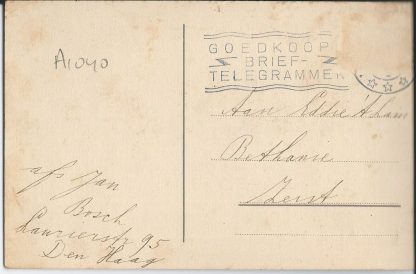 A1040
GOEDKOOPE
BRIEF-
TELEGRAMMEN
Aan Eddie à Cam
Bethanie
Zeist
afz Jan
Bosch
Laurierstr 95
Den Haag